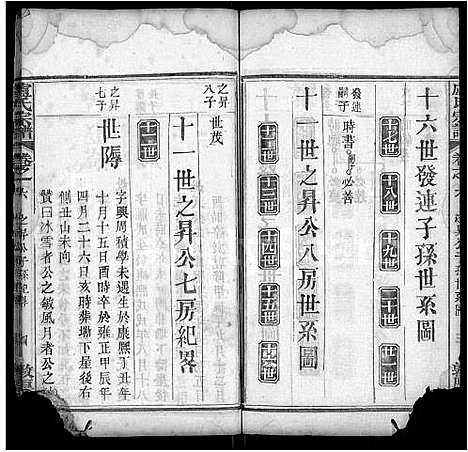 十六世發連子孫世系圖
十七世
十八世
十九世
二十世
二十一世
發連
嗣子
時書
必善
十一世之昇公八房世系圖
十二世
十三世
十四世
十五世
十六世
之昇
八子
世茂
十一世之昇公七房紀畧
十二世
之昇
七子
世隯
字興周積學未遇生於康熙丁丑年
十月十五日戌時卒於雍正甲辰年
四月二十六日亥時葬塘下星後右
側丑山未向
贊曰冰雪者公之敏風月者公之
盧氏宗譜
卷之六